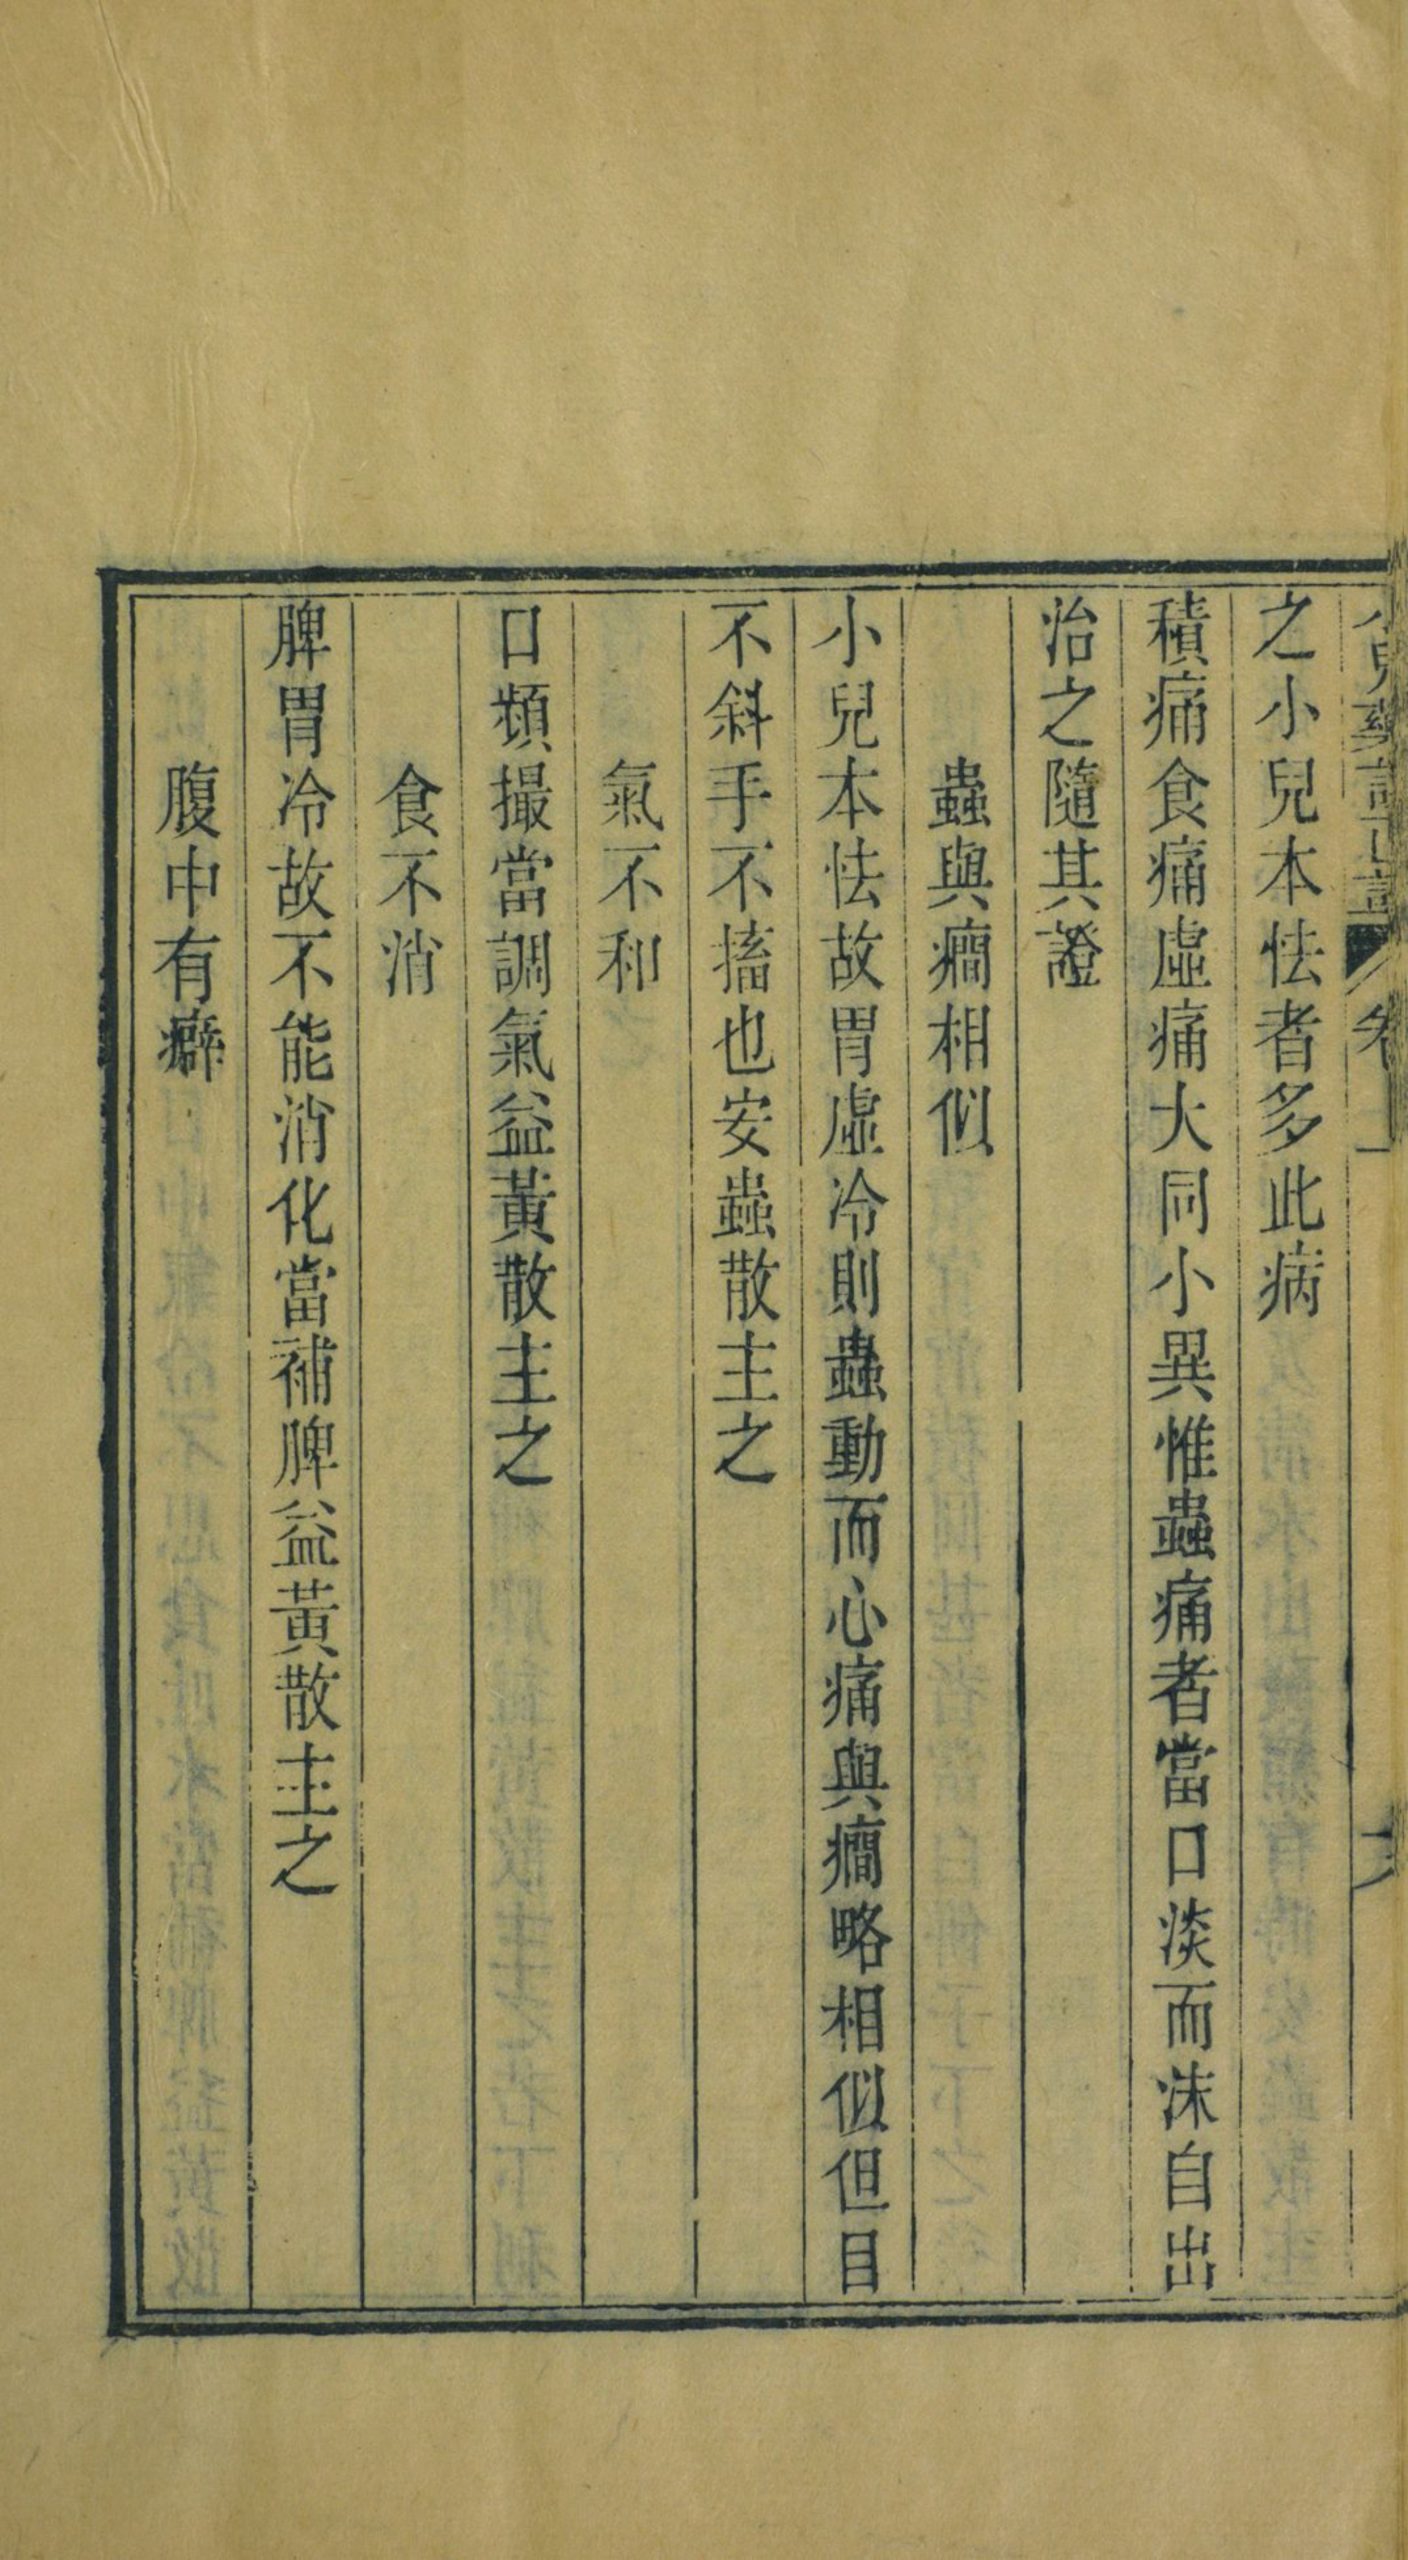 之小兒本怯者多此病
積痛食痛虛痛大同小異惟蟲痛者當口淡而沫自出
治之隨其證
蟲與癇相似
小兒本怯故胃虛冷則蟲動而心痛與癇略相似但目
不斜手不搐也安蟲散主之
氣不和
口頻撮當調氣益黃散主之
食不消
脾胃冷故不能消化當補脾益黃散主之
腹中有癖